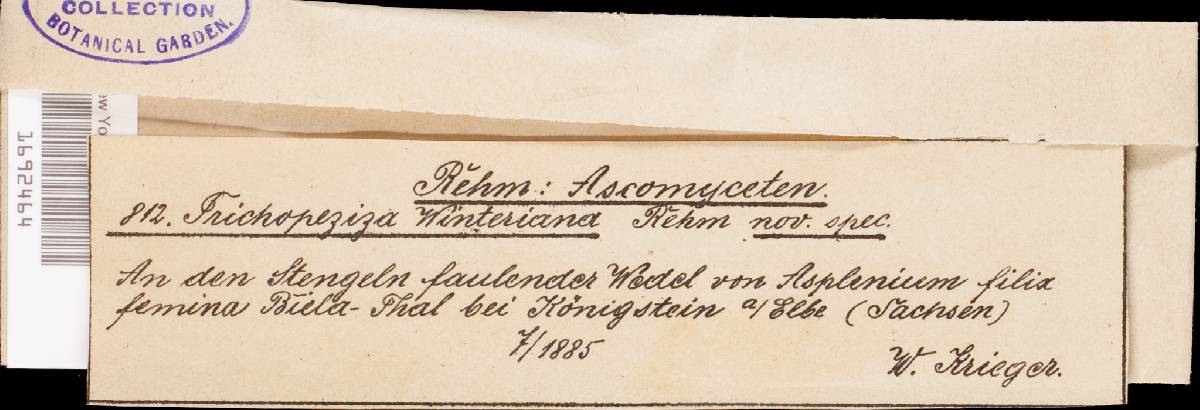 COLLECTION
BOTANICAL GARDEN.
ew Yo
1692464
Rehm: Ascomyceten.
812. Trichopeziza Winteriana Rehm nov. spec.
An den Stengeln faulender Wedel von Asplenium filix
femina Biela-Thal bei Königstein a/Elbe (Sachsen)
7/1885
W. Krieger.